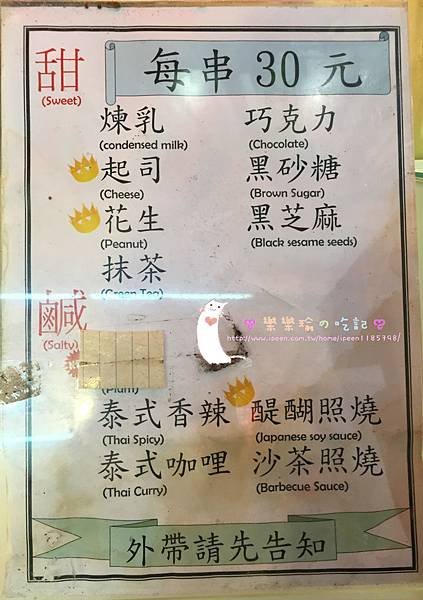 每串 30 元
甜
(Sweet)
煉乳
(condensed milk)
巧克力
(Chocolate)
起司
(Cheese)
黑砂糖
(Brown Sugar)
花生
(Peanut)
黑芝麻
(Black sesame seeds)
抹茶
(Green Tea)
鹹
(Salty)
樂樂瑜の吃記
http://www.ipeen.com.tw/home/ipeen1185798/
(Plum)
泰式香辣
(Thai Spicy)
醍醐照燒
(Japanese soy sauce)
泰式咖哩
(Thai Curry)
沙茶照燒
(Barbecue Sauce)
外帶請先告知